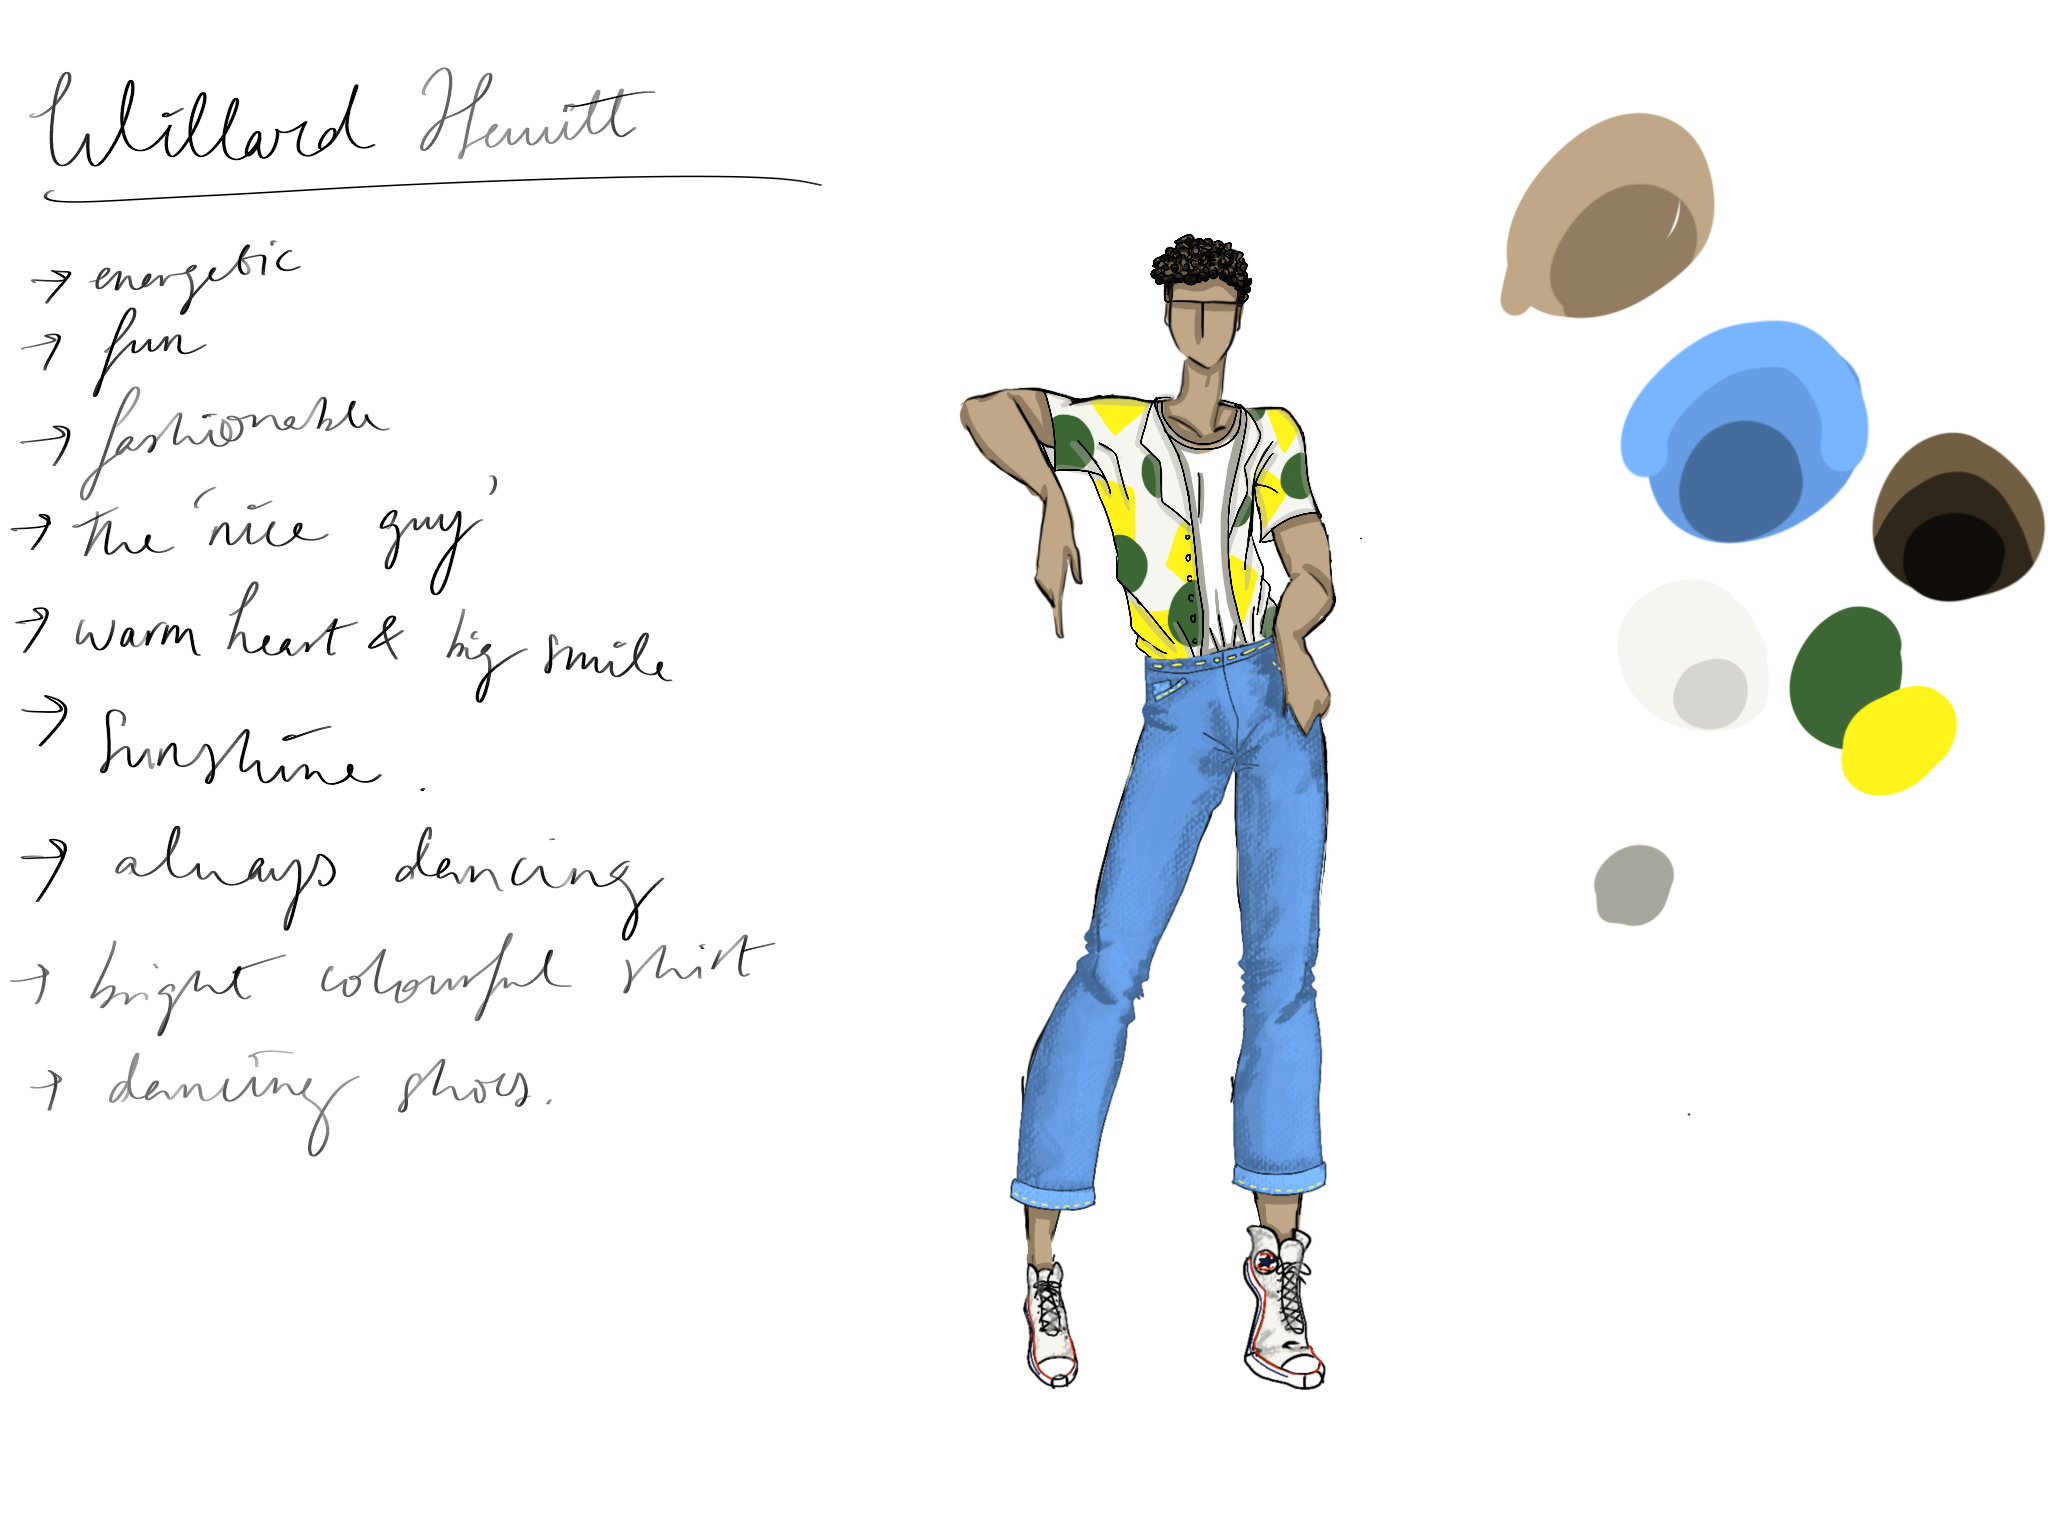 Willard Hewitt
→ energetic
→ fun
→ fashionable
→ The 'nice guy'
→ warm heart & big smile
→ Sunshine.
→ always dancing
→ bright colourful shirt
→ dancing shoes.